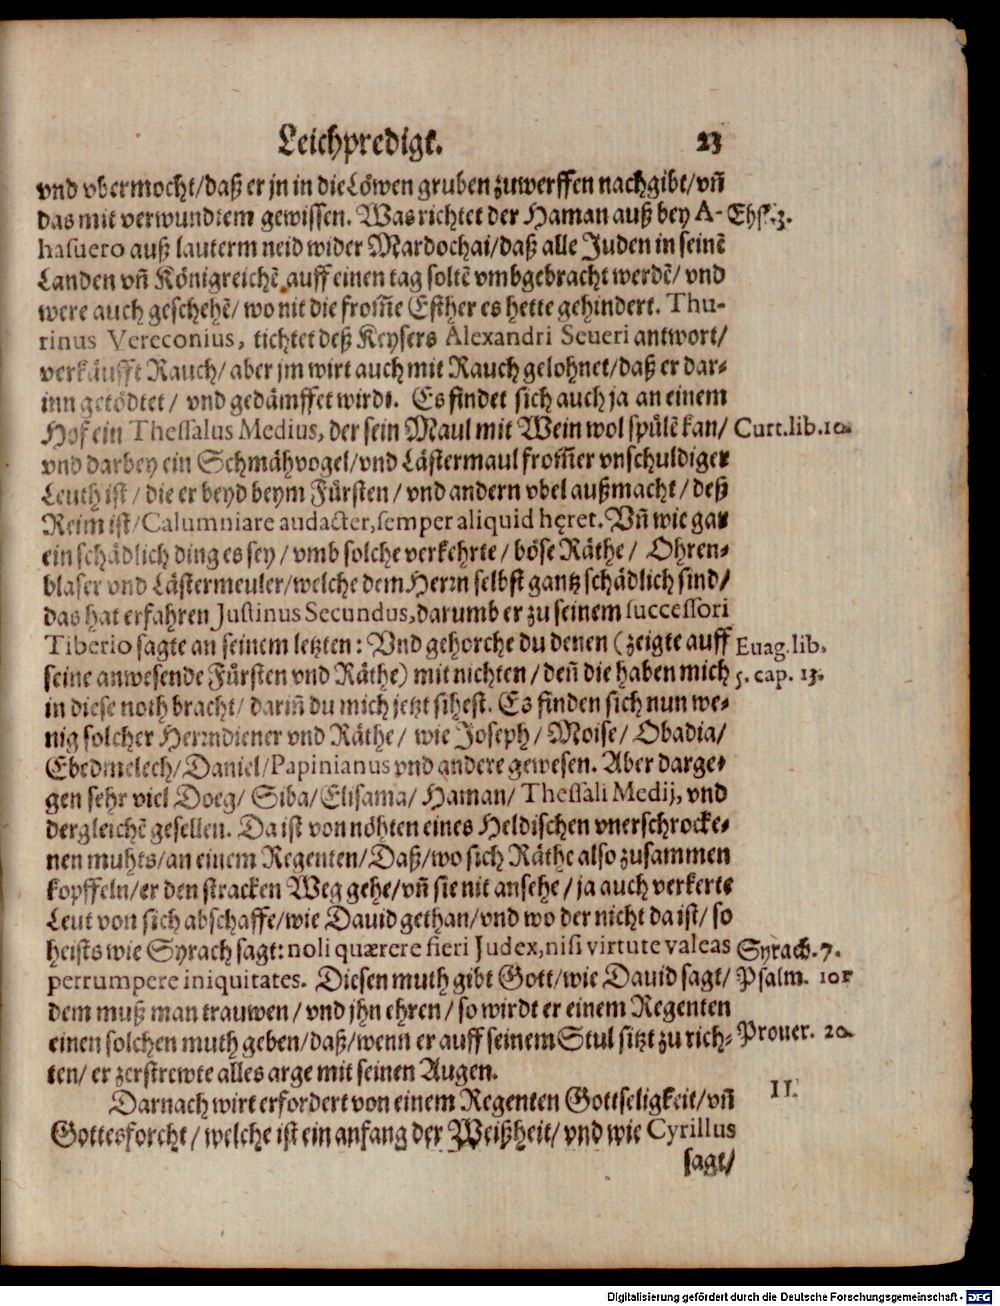 Leichpredigt. 23
vnd vbermocht/daß er jn in die Löwen gruben zuwerffen nachgibt/vñ
das mit verwundtem gewissen. Was richtet der Haman auß bey A- Esth. 3.
hasuero auß lauterm neid wider Mardochai/daß alle Juden in seinẽ
Landen vñ Königreichẽ auff einen tag soltẽ vmbgebracht werdẽ/ vnd
were auch geschehẽ/ wo nit die from̃e Esther es hette gehindert. Thu-
rinus Vereconius, tichtet deß Keysers Alexandri Seueri antwort/
verkäufft Rauch/ aber jm wirt auch mit Rauch gelohnet/daß er dar-
inn getödtet/ vnd gedämffet wirdt. Es findet sich auch ja an einem
Hof ein Thessalus Medius, der sein Maul mit Wein wol spülẽ kan/ Curt.lib.10.
vnd darbey ein Schmähvogel/vnd Lästermaul from̃er vnschuldiger
Leuth ist/ die er beyd beym Fürsten/ vnd andern vbel außmacht/ deß
Reim ist/Calumniare audacter, semper aliquid hęret. Vñ wie gar
ein schädlich ding es sey/ vmb solche verkehrte/ böse Räthe/ Ohren-
blaser vnd Lästermeuler/welche dem Herrn selbst gantz schädlich sind/
das hat erfahren Justinus Secundus, darumb er zu seinem successori
Tiberio sagte an seinem letzten: Vnd gehorche du denen (zeigte auff Euag.lib.
seine anwesende Fürsten vnd Räthe) mit nichten/ deñ die haben mich 5. cap. 13.
in diese noth bracht/ dariñ du mich jetzt sihest. Es finden sich nun we-
nig solcher Herrndiener vnd Räthe/ wie Joseph/ Moise/ Obadia/
Ebedmelech/Daniel/Papinianus vnd andere gewesen. Aber darge-
gen sehr viel Doeg/ Siba/Elisama/ Haman/ Thessali Medij, vnd
dergleichẽ gesellen. Da ist von nöhten eines Heldischen vnerschrocke-
nen muhts/an einem Regenten/Daß/wo sich Räthe also zusammen
kopffeln/er den stracken Weg gehe/vñ sie nit ansehe/ ja auch verkerte
Leut von sich abschaffe/wie Dauid gethan/vnd wo der nicht da ist/ so
heists wie Syrach sagt: noli quærere fieri Judex, nisi virtute valeas Syrach. 7.
perrumpere iniquitates. Diesen muth gibt Gott/wie Dauid sagt/ Psalm. 101
dem muß man trauwen/ vnd jhn ehren/ so wirdt er einem Regenten
einen solchen muth geben/daß/wenn er auff seinem Stul sitzt zu rich- Prouer. 20.
ten/ er zerstrewte alles arge mit seinen Augen.
Darnach wirt erfordert von einem Regenten Gottseligkeit/vñ II.
Gottesforcht/ welche ist ein anfang der Weißheit/ vnd wie Cyrillus
sagt/
Digitalisierung gefördert durch die Deutsche Forschungsgemeinschaft - DFG